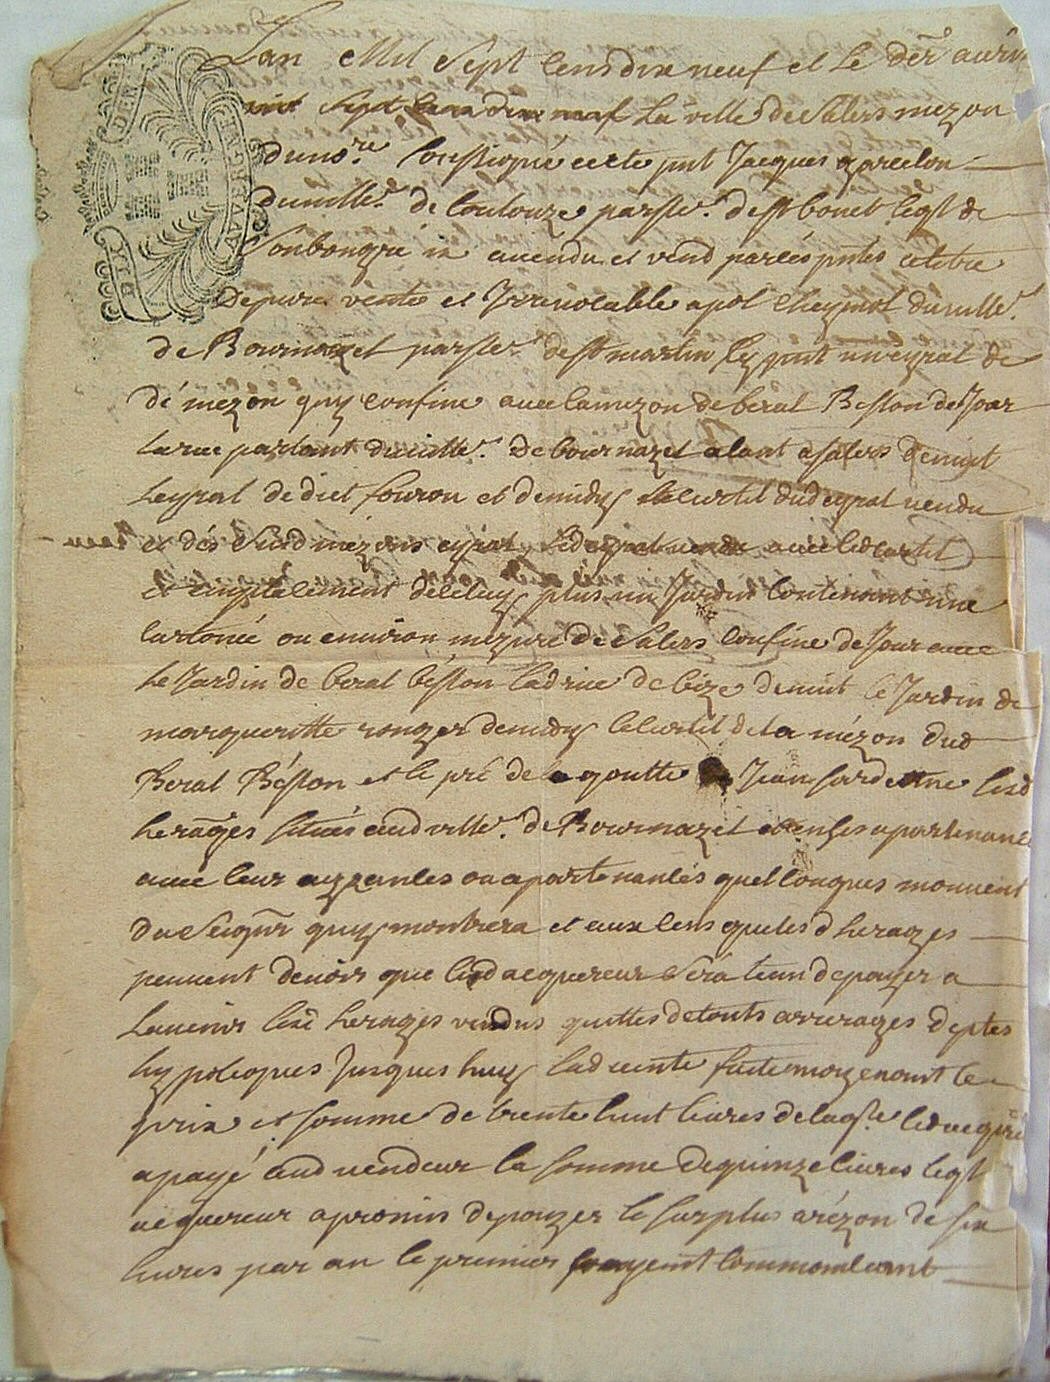 Lan Mil Sept Cens dix neuf et le der avril
mil Sept Cens dix neuf La ville de Salers mezon
du nore. Soussigné este pnt Jacques garcelon
du ville. de Coulouze parsse. de st bonet leql de
Son bon gré a vendu et vend par ces pntes titre
De pure vente et Irrevocable a pol Cheymol du ville.
de Bournazel parsse de st martin pnt un eyral de
dé mezon quy confine avec la mezon de beral Beston de Jour
la rue partant du ville. de bournazel alant a salers de nuit
leyral de diet et de midy le curtil dud eyral vendu
et dés Susd mezons eyral avec led curtil
et delcluy plus un Jardin contenant une
cartonée ou environ mezure de Salers confine de Jour avec
le Jardin de beral béston lad rue de bize de nuit le Jardin de
margueritte ronger de midy le curtil de la mézon dud
Beral Béston et le pré de la goutte Jean lesd
herages situés aud ville. de Bournazel et en ses apartenances
avec leur ayzances ou apartenancés quelconques mouvent
du Seignr quy montrera et aux cens que lesd herages
peuvent devoir que led acquereur Sera tenu de payer a
Lavenir lesd herages vendus quittes de touts arrerages deptes
hypoteques Jusques huy lad vente faite moyenant le
prix et somme de trente huit livres de laqle led acqr
a payé aud vendeur la somme de quinze livres leql
acquereur a promis de payer le surplus a rézon de six
livres par an le premier payemt commancant